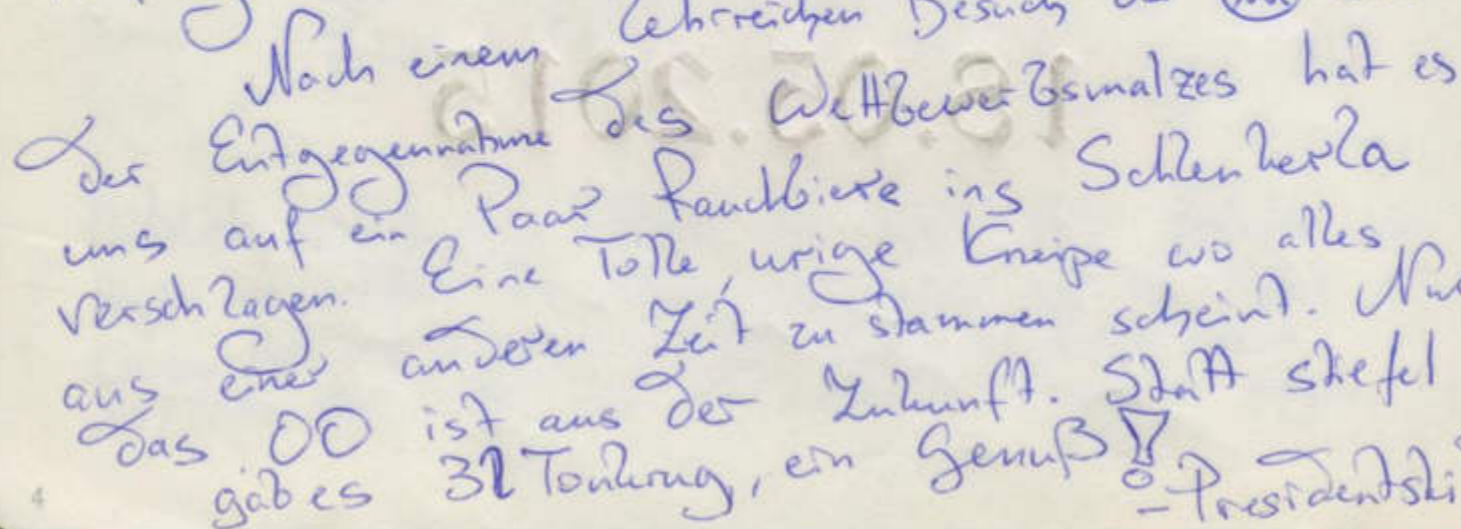 Nach einem Lehrreichen Besuch
der Entgegennahme des Wettbewerbsmalzes hat es
uns auf ein Paar Rauchbiere ins Schlenkerla
verschlagen. Eine Tolle, urige Kneipe wo alles
aus einer anderen Zeit zu stammen scheint. Nur
das OO ist aus der Zukunft. Statt stiefel
gab es 3l Tonkrug, ein Genuß!
- Presidentski
18.05.2015
4